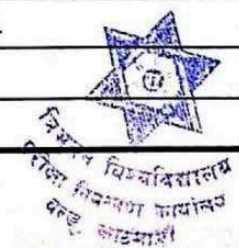 त्रिभुवन विश्वविद्यालय
परीक्षा नियन्त्रण कार्यालय
बल्खु, काठमाडौं